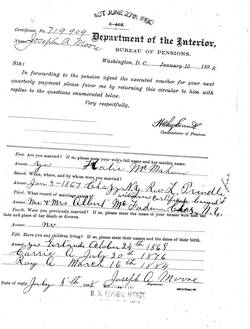 ACT JUNE 27TH, 1890
3-402.
Certificate No. 719.909
Name, Joseph A. Moore
Department of the Interior,
BUREAU OF PENSIONS.
Washington, D. C., January 15, 189
SIR:
In forwarding to the pension agent the executed voucher for your next
quarterly payment please favor me by returning this circular to him with
replies to the questions enumerated below.
Very respectfully,
Commissioner of Pensions.
First. Are you married? If so, please state your wife's full name and her maiden name.
yes Mc Mahon
Second. When, where, and by whom were you married?
Jan 3-1867 Chazy N.Y. Rev L. Prindle
Third. What record of marriage exists?
Mr & Mrs Albert Mc Fadden Chazy N.Y.
Fourth. Were you previously married? If so, please state the name of your former wife and the
date and place of her death or divorce.
no
Fifth. Have you any children living? If so, please state their names and the dates of their birth.
yes Gertrude October 24th 1869
Carrie A July 20th 1876
Ray A March 16th 1884
Joseph A Moore
Date of reply, July 5th